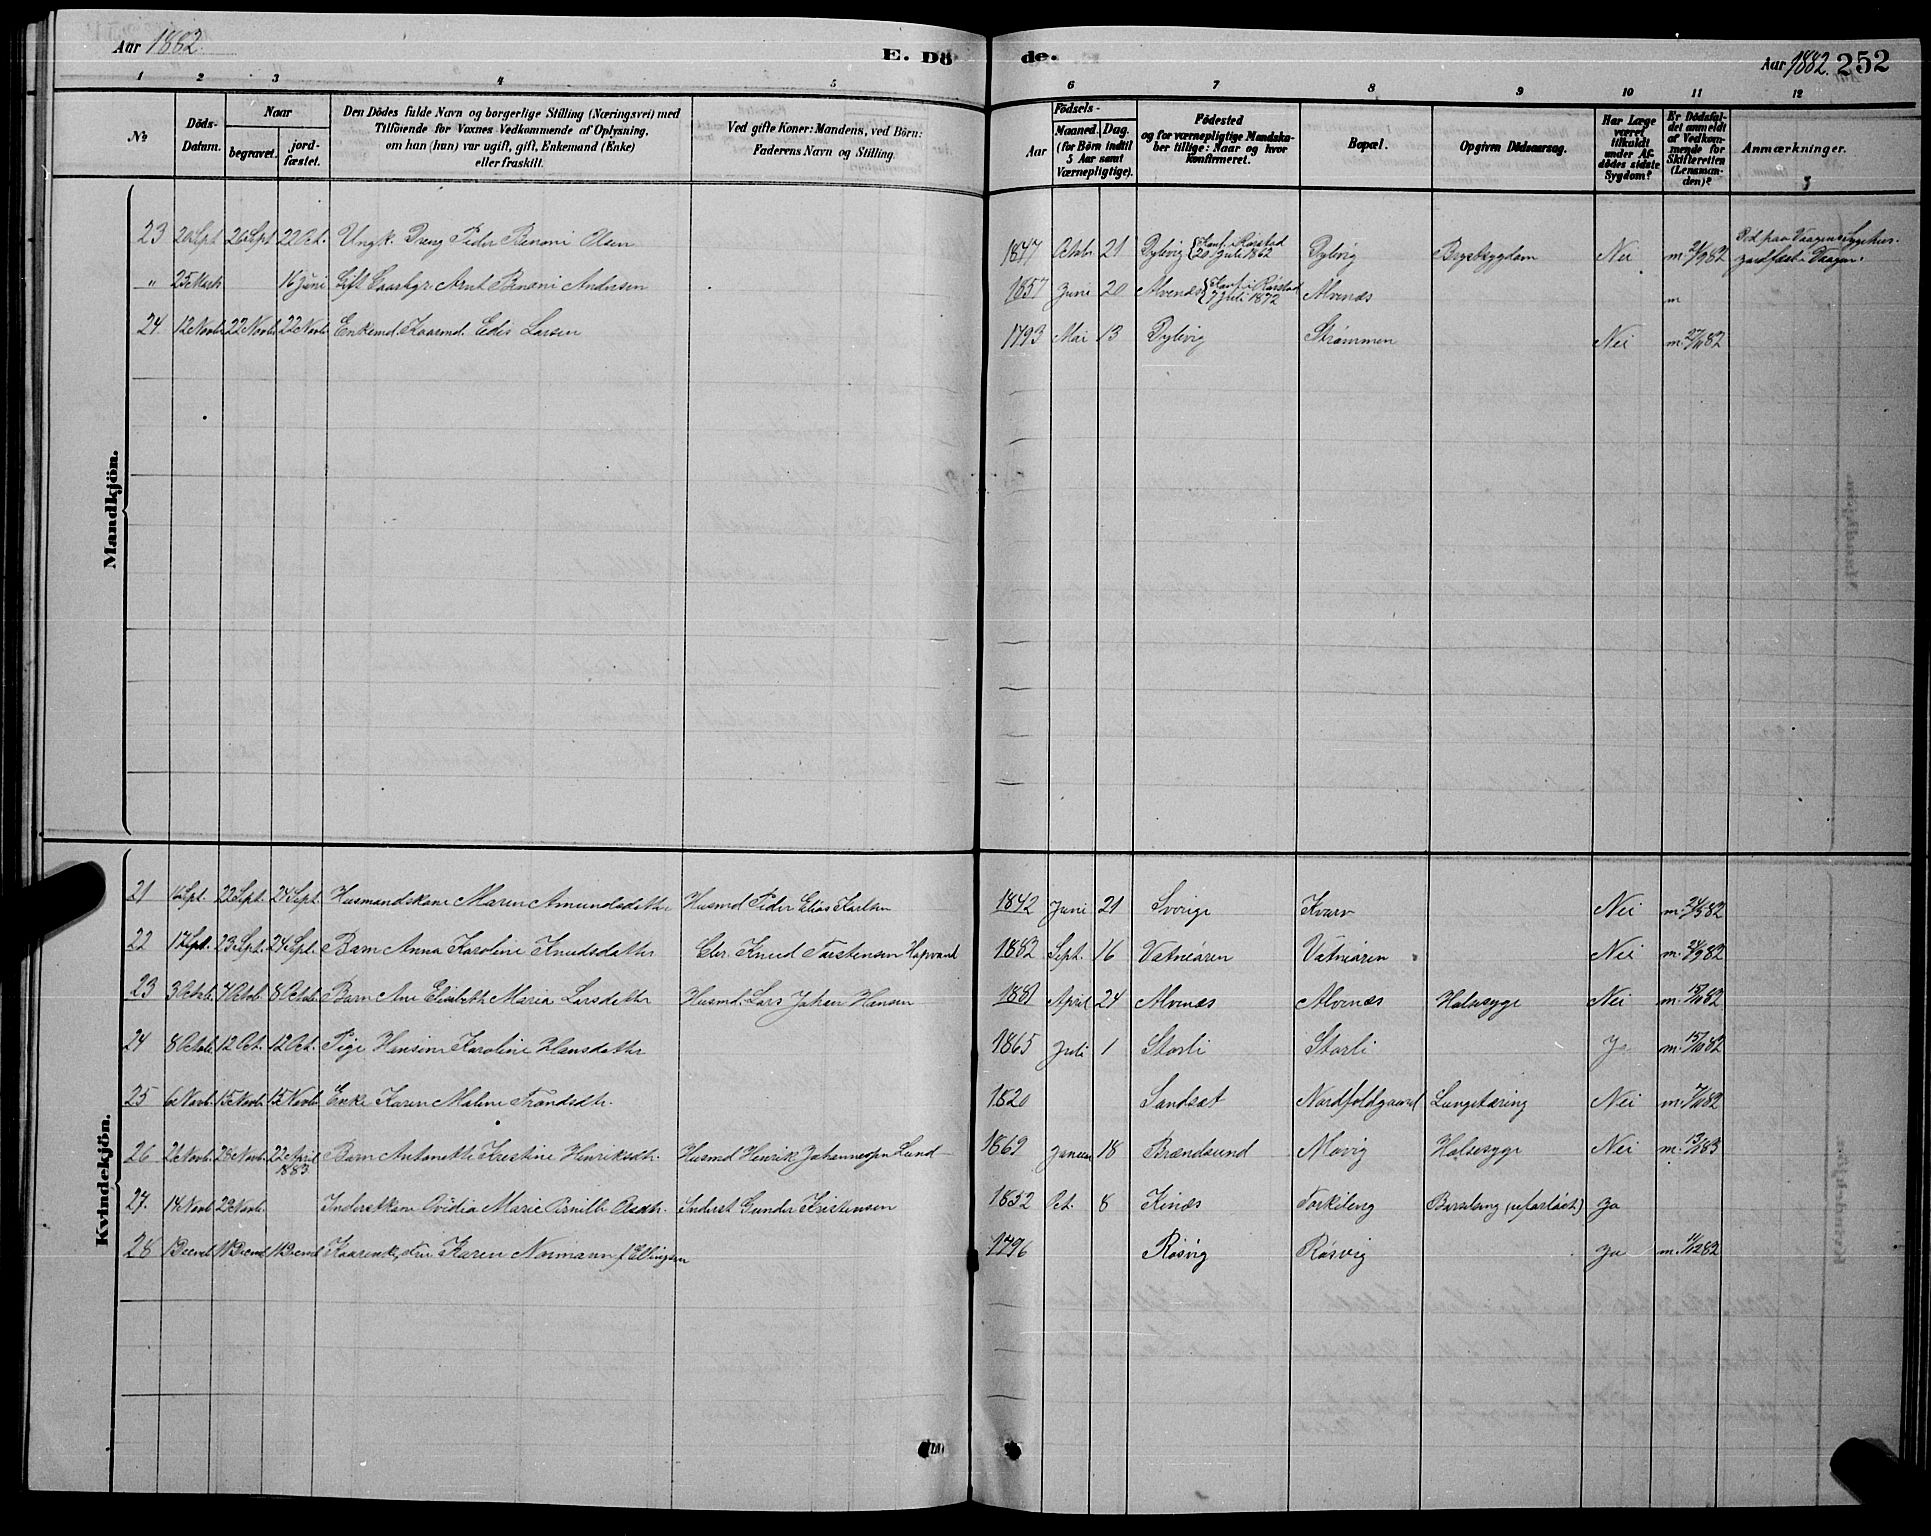 Aar 1882.
E. Dö
de.
Aar 1882. 252
1 2 3 4 5 6 7 8 9 10 11 12
№
Döds-Datum.
Naar
begravet.
jord-fæstet.
Den Dödes fulde Navn og borgerlige Stilling (Næringsvei) med
Tilföiende for Voxnes Vedkommende af Oplysning,
om han (hun) var ugift, gift, Enkemand (Enke)
eller fraskilt.
Ved gifte Koner: Mandens, ved Börn:
Faderens Navn og Stilling.
Födsels-
Aar
Maaned. Dag.
(for Börn indtil
5 Aar samt
Værnepligtige).
Födested
og for værnepligtige Mandska-
ber tillige: Naar og hvor
konfirmeret.
Bopæl.
Opgiven Dödsaarsag.
Har Læge
været
tilkaldt
under Af-
dödes sidste
Sygdom?
Er Dödsfal-
det anmeldt
af Vedkom-
mende for
Skifteretten
(Lensman-
den)?
Anmærkninger.
Mandkjön.
23 20 Sept 26 Sept 22 Oct. Ungk. Dreng Peder Benoni Olsen 1847 Octob. 21 Dylvig {Konf. i Rörstad 20 Juli 1862 Dylvig Brystsygdom Nei m. 21/9 82 Död paa Vaagens Sygehus. jordfæst i Vaagan.
" 25 Marts 16 Juni Gift Gaardbgr. Arnt Benoni Andersen 1857 Juni 20 Alvenæs {Konf. i Rörstad 7 Juli 1872 Alvenæs m
24 12 Novb. 22 Novb. 22 Novb. Enkemd. Kaarmd. Edis Larsen 1793 Mai 13 Dylvig Strömmen Nei m. 27/11 82
Kvindekjön.
21 16 Spt. 22 Sept. 24 Sept. Husmandskone Maren Amundsdatter Husmd Peder Elias Karlsen 1842 Juni 21 Sverige Kvarv Nei m. 24/9 82
22 17 Spt. 23 Sept. 24 Sept. Barn Anna Karoline Knudsdatter Elev. Knud Torstensen Hopvand 1882 Sept. 16 Vatneören Vatneören Nei m. 24/9 82
23 3 Octob. 7 Octob. 8 Octob. Barn Ane Elisabeth Maria Larsdattr Husmd. Lars Johan Hansen 1881 April 24 Alvenæs Alvenæs Halssyge Nei m. 12/10 82
24 8 Octob. 12 Oct. 12 Oct. Pige Hansine Karoline Hansdattr 1865 Juli 1 Storli Storli Ja m. 15/10 82
25 6 Novb. 15 Novb. 15 Novb. Enke Karen Maline Trondsdtr. 1820 Sandset Nordfoldgaard Lungetæring Nei m. 7/11 82
26 26 Novb. 28 Novb. 22 April 1883 Barn Antonette Kristine Henriksdtr. Husmd Henrik Johannessen Lund 1869 Januar 18 Brændsund Movig Halssyge Nei m. 13/1 83
27. 14 Novb 29 Novb. Inderstkone Ovidia Marie Pernille Olsdtr. Inderst Gunder Kristensen 1852 Oct. 8 Kinæs Torkileng Barselseng (uforlöst) Ja
28 1 Decmb 11 Decmb 11 Decmb Kaarenke, Fru Karen Normann f. Ellingsen 1796 Rösvig Rösvig Ja m. 11/12 82